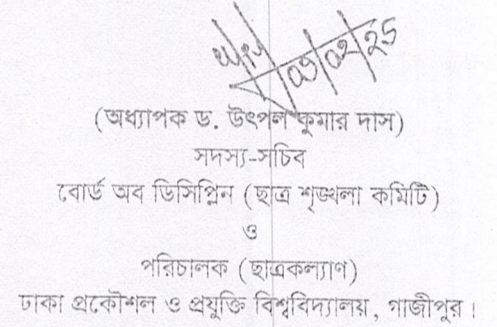 ০৩/০২/২৫
(অধ্যাপক ড. উৎপল কুমার দাস)
সদস্য-সচিব
বোর্ড অব ডিসিপ্লিন (ছাত্র শৃঙ্খলা কমিটি)
ও
পরিচালক (ছাত্রকল্যাণ)
ঢাকা প্রকৌশল ও প্রযুক্তি বিশ্ববিদ্যালয়, গাজীপুর।